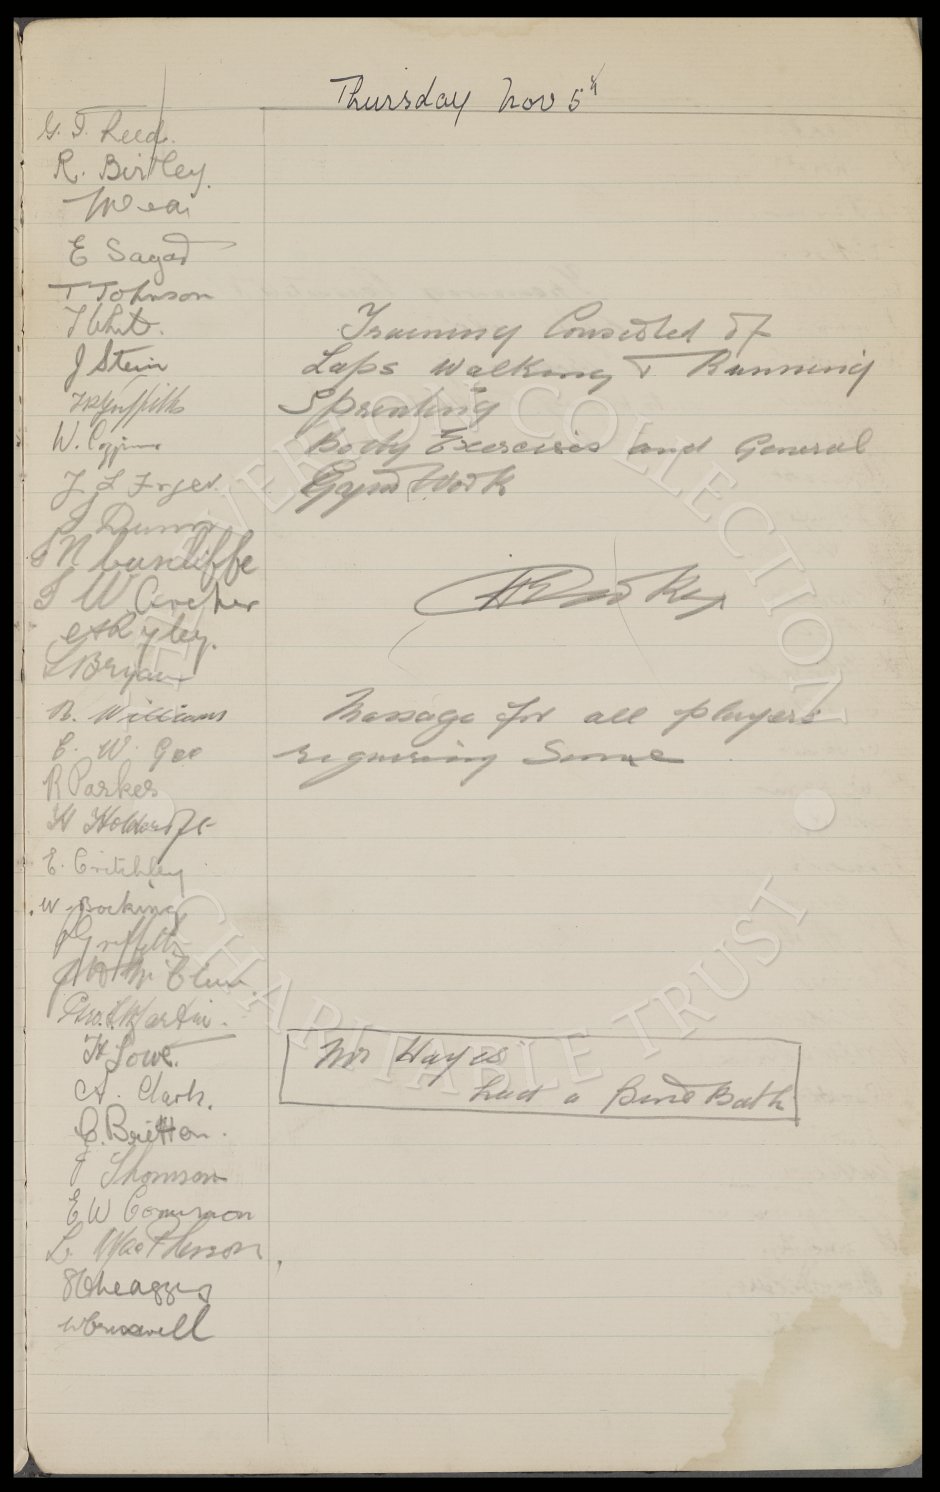 Thursday Nov 5th
G. T. Reed.
R. Birtley.
E Sagar
T Johnson
T White.
Training Consisted of
J Stein
Laps Walking & Running
T P Griffiths
Sprinting
W. Coggins
Body Exercises and General
J L Fryer.
Gym Work
J Dunn
J N Cunliffe
J W Archer
HE Cooke
A Ryley.
L Bryan
R. Williams
Massage for all players
E. W. Gee
requiring Same
R Parker
H Holdcroft
E. Critchley
W. Bocking
P Griffiths
Geo. S Martin.
H Lowe.
Mr Hayes
had a Brine Bath
A. Clark.
C. Britton.
J Thomson
E W Common
L. MacPherson
W Cresswell
EVERTON COLLECTION
CHARITABLE TRUST